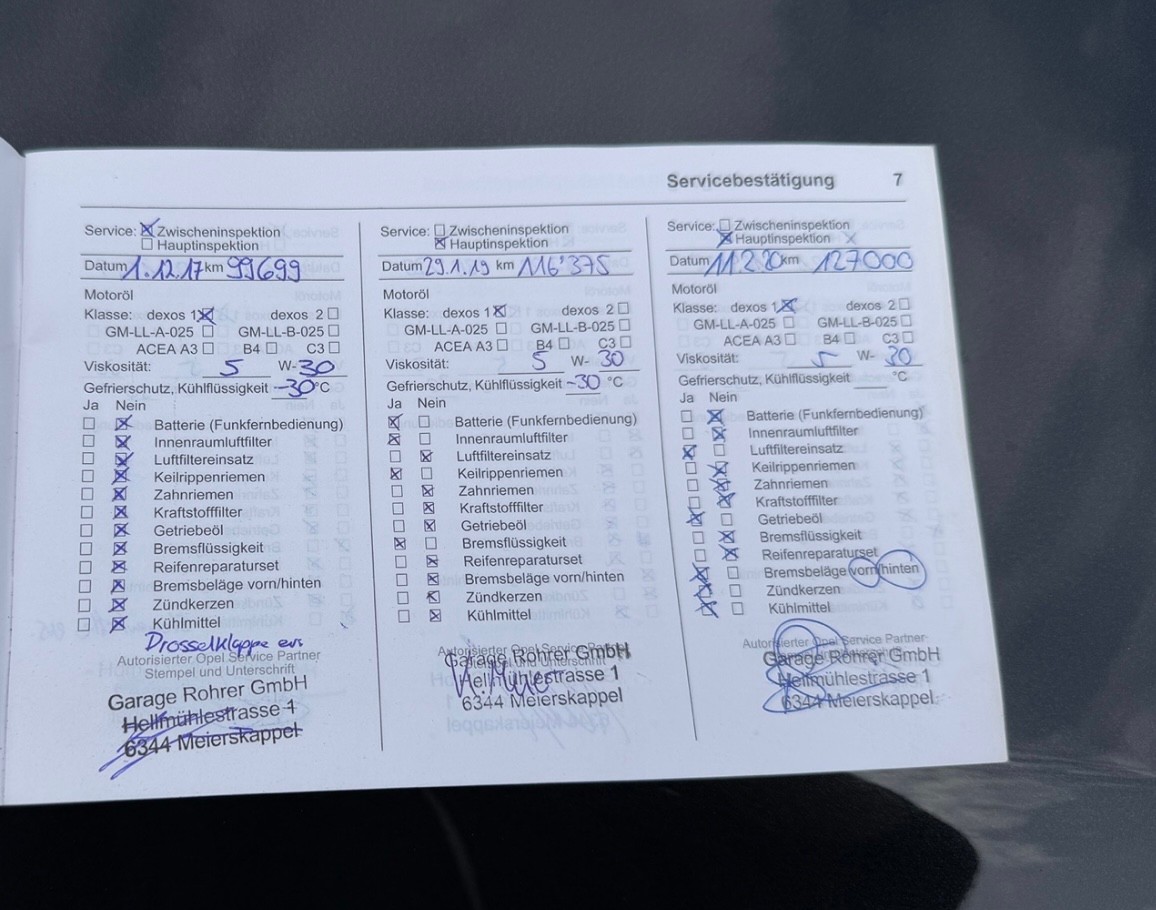 Servicebestätigung 7
Service: ☒ Zwischeninspektion
☐ Hauptinspektion
Datum 1.12.17 km 99699
Motoröl
Klasse: dexos 1 ☒ dexos 2 ☐
GM-LL-A-025 ☐ GM-LL-B-025 ☐
ACEA A3 ☐ B4 ☐ C3 ☐
Viskosität: 5 W- 30
Gefrierschutz, Kühlflüssigkeit -30 °C
Ja Nein
☐ ☒ Batterie (Funkfernbedienung)
☐ ☒ Innenraumluftfilter
☐ ☒ Luftfiltereinsatz
☐ ☒ Keilrippenriemen
☐ ☒ Zahnriemen
☐ ☒ Kraftstofffilter
☐ ☒ Getriebeöl
☐ ☒ Bremsflüssigkeit
☐ ☒ Reifenreparaturset
☐ ☒ Bremsbeläge vorn/hinten
☐ ☒ Zündkerzen
☐ ☒ Kühlmittel
Drosselklappe
Autorisierter Opel Service Partner
Stempel und Unterschrift
Garage Rohrer GmbH
Hellmühlestrasse 1
6344 Meierskappel
Service: ☐ Zwischeninspektion
☒ Hauptinspektion
Datum 29.1.19 km 116'375
Motoröl
Klasse: dexos 1 ☒ dexos 2 ☐
GM-LL-A-025 ☐ GM-LL-B-025 ☐
ACEA A3 ☐ B4 ☐ C3 ☐
Viskosität: 5 W- 30
Gefrierschutz, Kühlflüssigkeit -30 °C
Ja Nein
☒ ☐ Batterie (Funkfernbedienung)
☒ ☐ Innenraumluftfilter
☐ ☒ Luftfiltereinsatz
☒ ☐ Keilrippenriemen
☐ ☒ Zahnriemen
☐ ☒ Kraftstofffilter
☐ ☒ Getriebeöl
☒ ☐ Bremsflüssigkeit
☐ ☒ Reifenreparaturset
☐ ☒ Bremsbeläge vorn/hinten
☐ ☒ Zündkerzen
☐ ☒ Kühlmittel
Autorisierter Opel Service Partner
Garage Rohrer GmbH
Hellmühlestrasse 1
6344 Meierskappel
Service: ☐ Zwischeninspektion
☒ Hauptinspektion
Datum 11.2.20 km 127000
Motoröl
Klasse: dexos 1 ☒ dexos 2 ☐
GM-LL-A-025 ☐ GM-LL-B-025 ☐
ACEA A3 ☐ B4 ☐ C3 ☐
Viskosität: 5 W- 30
Gefrierschutz, Kühlflüssigkeit °C
Ja Nein
☐ ☒ Batterie (Funkfernbedienung)
☐ ☒ Innenraumluftfilter
☒ ☐ Luftfiltereinsatz
☐ ☒ Keilrippenriemen
☐ ☒ Zahnriemen
☐ ☒ Kraftstofffilter
☒ ☐ Getriebeöl
☐ ☒ Bremsflüssigkeit
☐ ☒ Reifenreparaturset
☒ ☐ Bremsbeläge vorn/hinten
☒ ☐ Zündkerzen
☒ ☐ Kühlmittel
Autorisierter Opel Service Partner
Garage Rohrer GmbH
Hellmühlestrasse 1
6344 Meierskappel